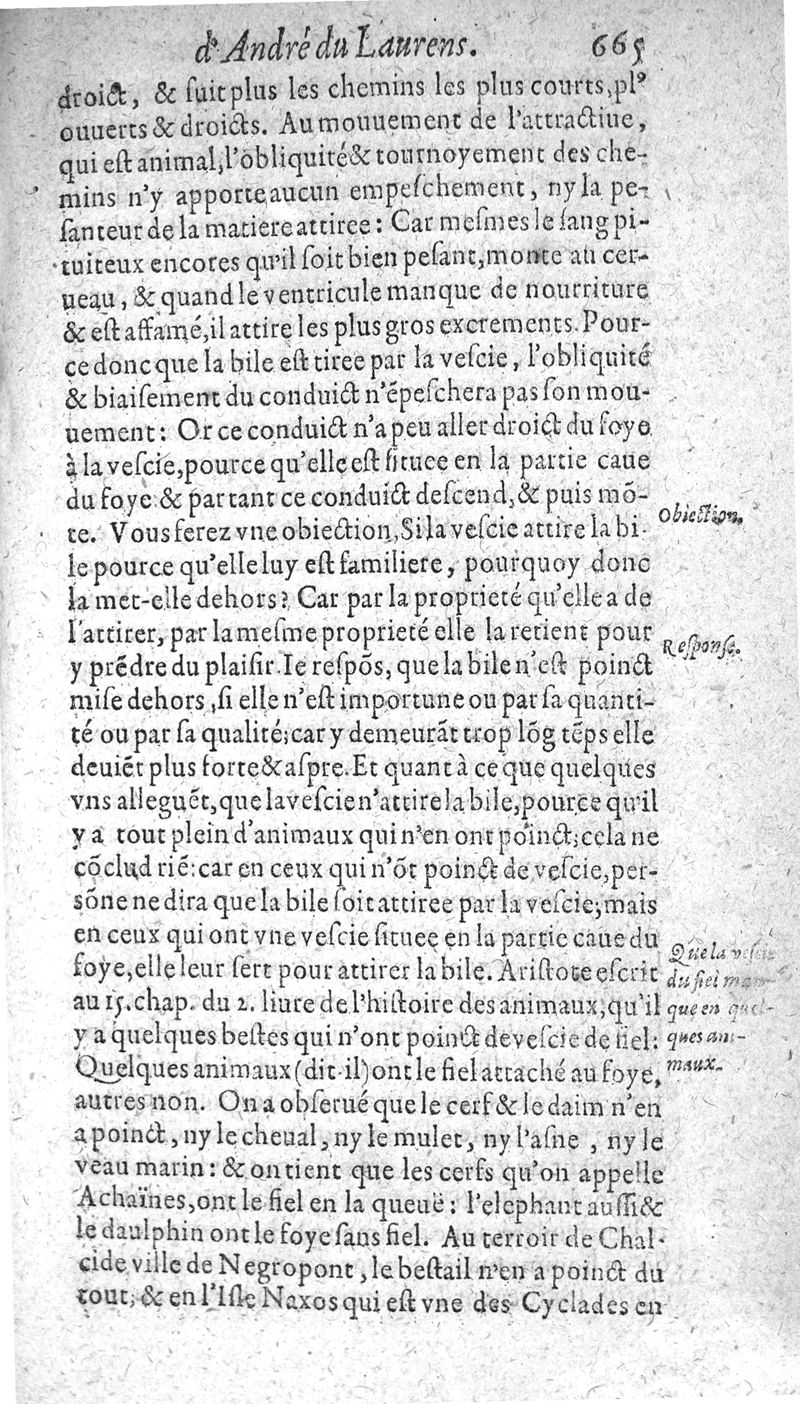 d'André du Laurens. 665
droict, & suit plus les chemins les plus courts, plꝰ
ouuerts & droicts. Au mouuement de l'attractiue,
qui est animal, l'obliquité & tournoyement des che-
mins n'y apporte aucun empeſchement, ny la pe-
ſanteur de la matiere attiree: Car meſmes le ſang pi-
tuiteux encores qu'il ſoit bien peſant, monte au cer-
ueau, & quand le ventricule manque de nourriture
& eſt affamé, il attire les plus gros excrements. Pour-
ce donc que la bile eſt tiree par la veſcie, l'obliquité
& biaiſement du conduict n'ēpeſchera pas ſon mou-
uement: Or ce conduict n'a peu aller droict du foye
à la veſcie, pource qu'elle eſt ſituee en la partie caue
du foye & partant ce conduict deſcend, & puis mō-
te. Vous ferez vne obiection, Si la veſcie attire la bi-
le pource qu'elle luy eſt familiere, pourquoy donc
la met-elle dehors? Car par la proprieté qu'elle a de
l'attirer, par la meſme proprieté elle la retient pour
y prēdre du plaiſir. Ie reſpōs, que la bile n'eſt poinct
miſe dehors, ſi elle n'eſt importune ou par ſa quanti-
té ou par ſa qualité; car y demeurāt trop lōg tēps elle
deuiēt plus forte & aſpre. Et quant à ce que quelques
vns alleguēt, que la veſcie n'attire la bile, pource qu'il
y a tout plein d'animaux qui n'en ont poinct; cela ne
cōclud riē: car en ceux qui n'ōt poinct de veſcie, per-
sōne ne dira que la bile ſoit attiree par la veſcie; mais
en ceux qui ont vne veſcie ſituee en la partie caue du
foye, elle leur ſert pour attirer la bile. Ariſtote eſcrit
au 15. chap. du 2. liure de l'hiſtoire des animaux, qu'il
y a quelques beſtes qui n'ont poinct de veſcie de fiel:
Quelques animaux (dit-il) ont le fiel attaché au foye,
autres non. On a obſerué que le cerf & le daim n'en
a poinct, ny le cheual, ny le mulet, ny l'aſne, ny le
veau marin: & on tient que les cerfs qu'on appelle
Achaïnes, ont le fiel en la queuë: l'elephant auſſi &
le daulphin ont le foye ſans fiel. Au terroir de Chal-
cide ville de Negropont, le beſtail n'en a poinct du
tout, & en l'Iſle Naxos qui eſt vne des Cyclades en
Obiection.
Reſponſe.
Que la veſcie
du fiel man-
que en quel-
ques ani-
maux.